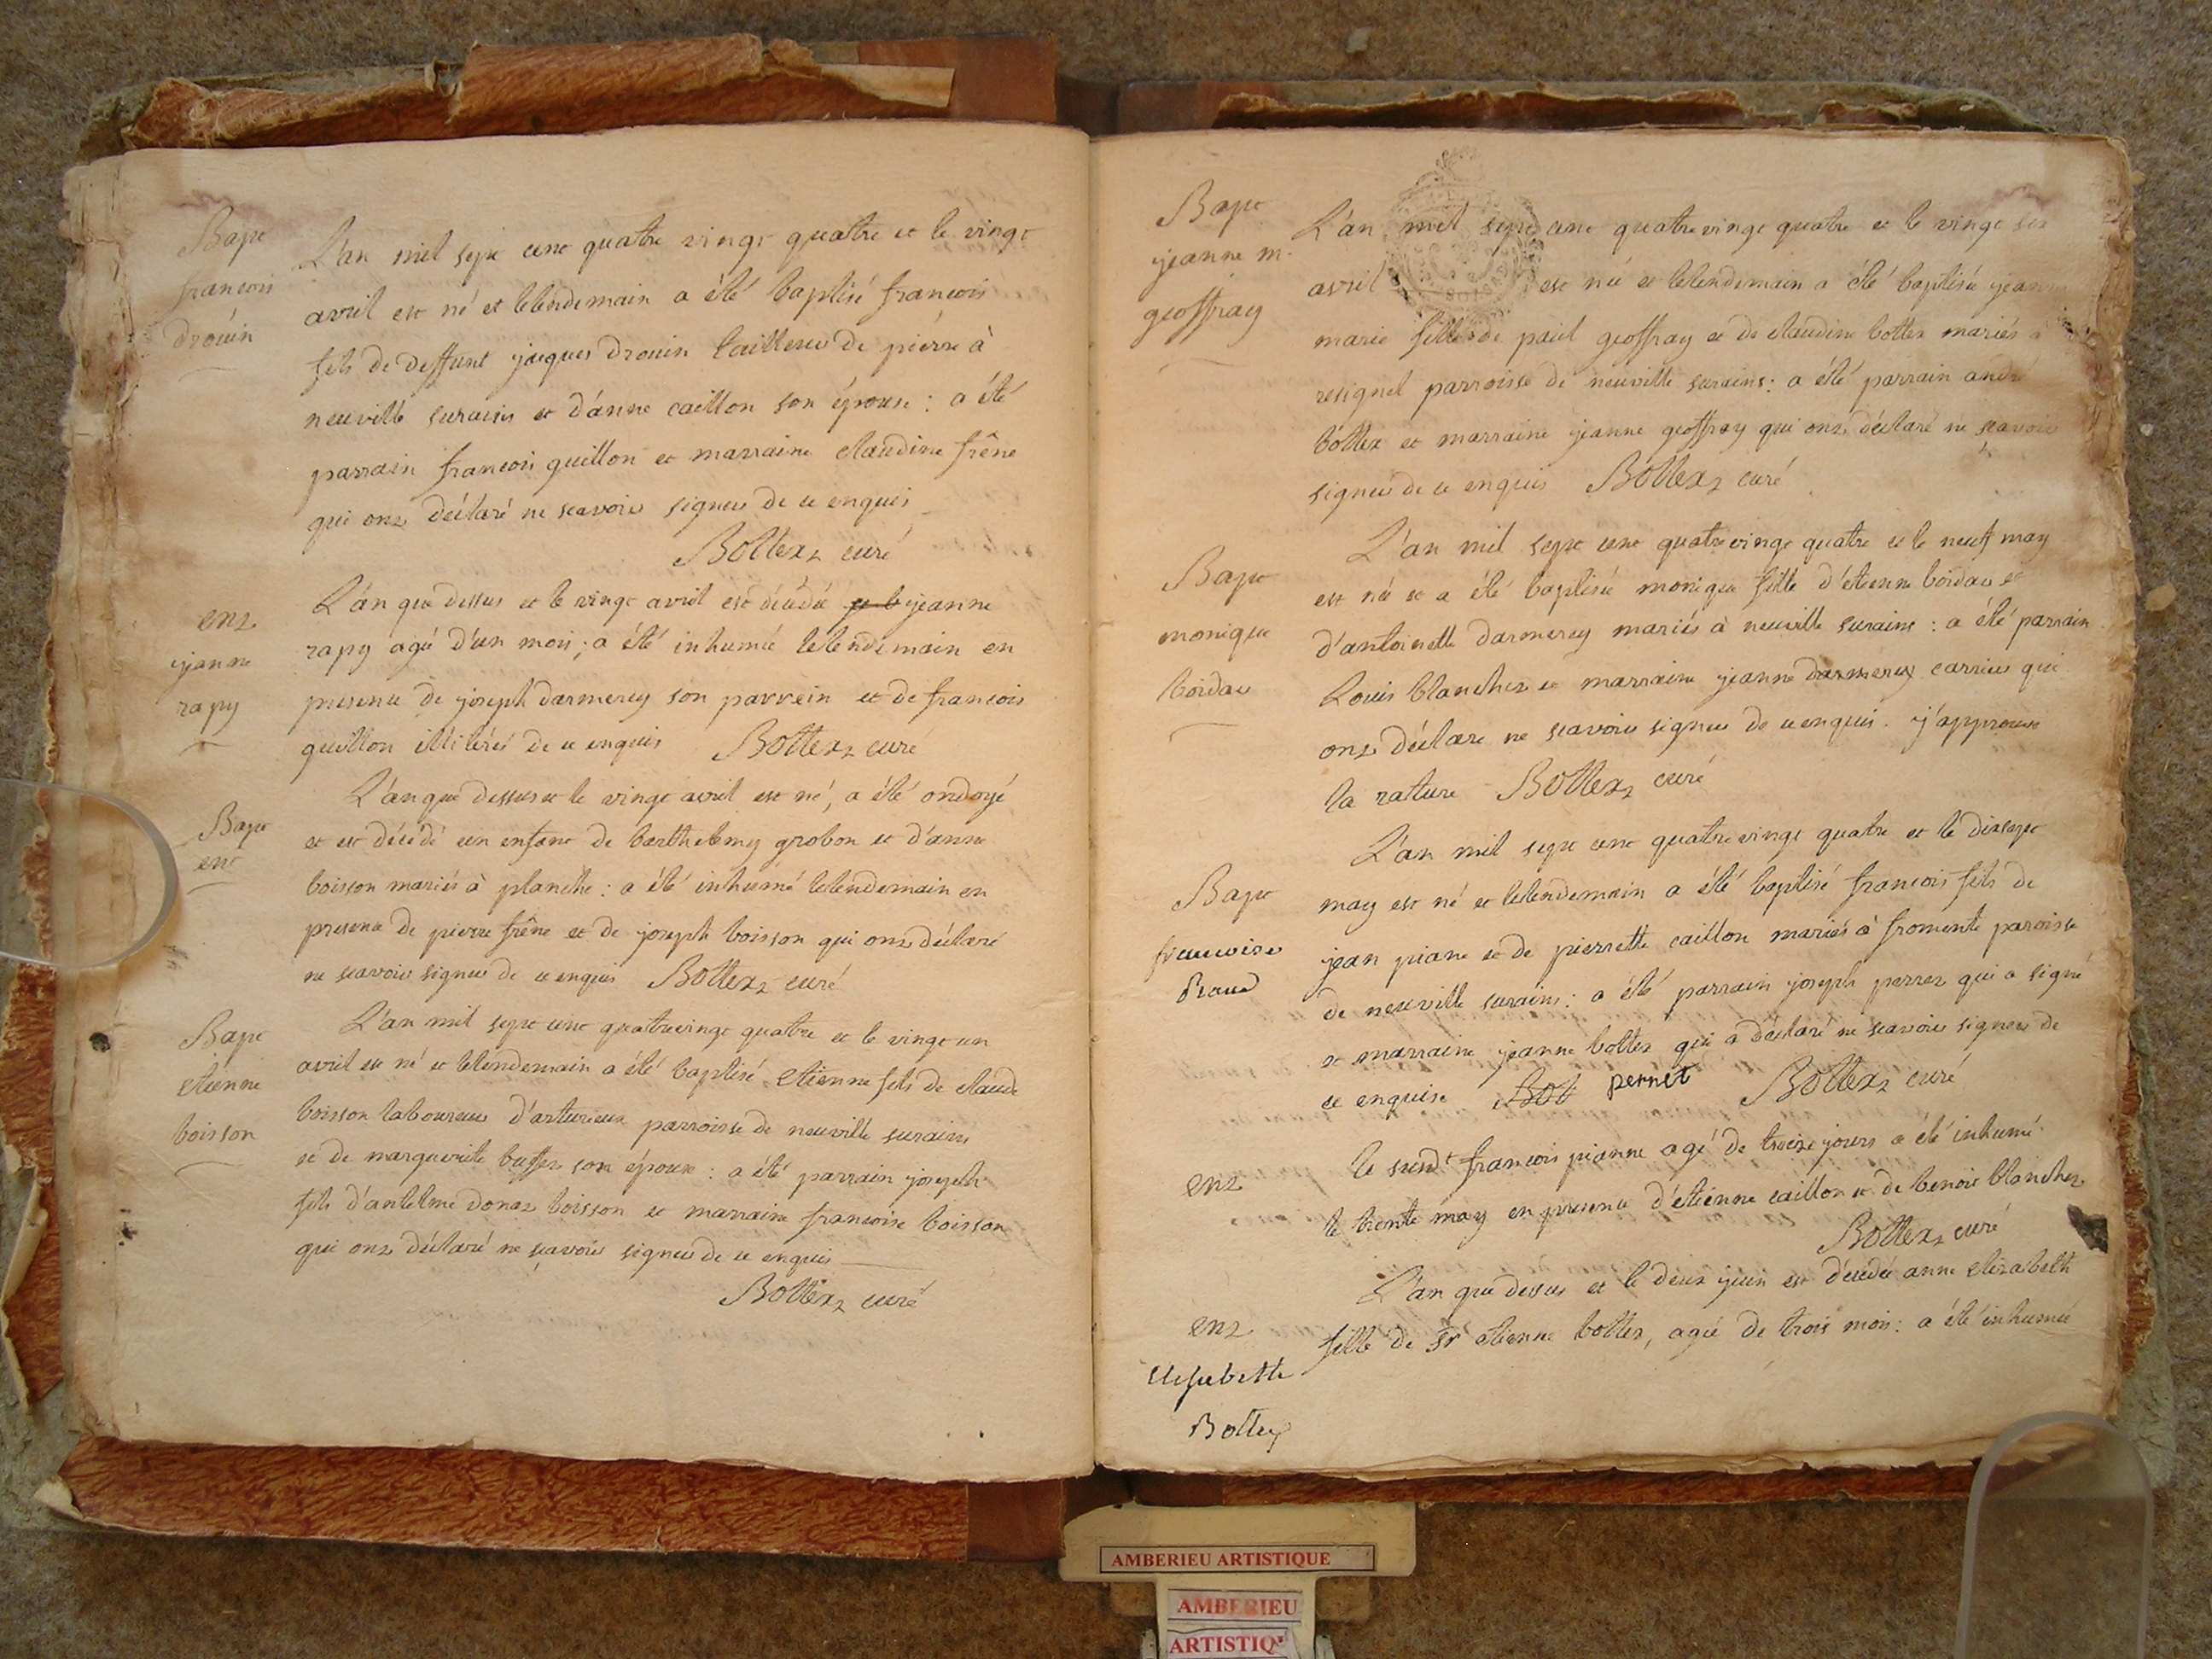 Bapt
francois
drouin
L'an mil sept cent quatre vingt quatre et le vingt
avril est né et lelendemain a été baptisé francois
fils de deffunt jacques drouin tailleur de pierre à
neuville surains et d'anne caillon son épouse : a été
parrain francois guillon et marraine claudine frêne
qui ont déclaré ne scavoir signer de ce enquis
Bottex curé
ent
jeanne
rapy
L'an que dessus et le vingt avril est décédé jeanne
rapy agée d'un mois ; a été inhumée lelendemain en
presence de joseph darmerey son parrein et de francois
guillon illiterés de ce enquis Bottex curé
Bapt
ent
L'an que dessus et le vingt avril est né, a été ondoyé
et est décédé un enfant de barthelemy grobon et d'anne
boisson mariés à planche : a été inhumé lelendemain en
presence de pierre frêne et de joseph boisson qui ont déclaré
ne scavoir signer de ce enquis Bottex curé
Bapt
etienne
boisson
L'an mil sept cent quatrevingt quatre et le vingt un
avril est né et lelendemain a été baptisé etienne fils de claude
boisson laboureur d'arturieux parroisse de neuville surains
et de marguerite buffet son épouse : a été parrain joseph
fils d'antelme donat boisson et marraine francoise boisson
qui ont déclaré ne scavoir signer de ce enquis
Bottex curé
Bapt
jeanne m.
geoffray
L'an mil sept cent quatrevingt quatre et le vingt six
avril est née et lelendemain a été baptisée jeanne
marie fille de paul geoffray et de claudine bottex mariés à
resignel parroisse de neuville surains : a été parrain andré
bottex et marraine jeanne geoffray qui ont déclaré ne scavoir
signer de ce enquis Bottex curé
Bapt
monique
boidar
L'an mil sept cent quatrevingt quatre et le neuf may
est née et a été baptisée monique fille d'etienne boidar et
d'antoinette darmerey mariés à neuville surains : a été parrain
Louis blanchet et marraine jeanne darmerey carrier qui
ont déclaré ne scavoir signer de ce enquis. j'approuve
la rature Bottex curé
Bapt
francoise
L'an mil sept cent quatrevingt quatre et le dixsept
may est né et lelendemain a été baptisé francois fils de
jean piane et de pierrette caillon mariés à fromente paroisse
de neuville surains : a été parrain joseph perret qui a signé
et marraine jeanne bottex qui a déclaré ne scavoir signer de
ce enquise Bot pernet Bottex curé
ent
le susdt francois pianne agé de treize jours a été inhumé
le trente may en presence d'etienne caillon et de benoit blanchet
Bottex curé
ent
Elisabethe
Bottex
L'an que dessus et le deux juin est décédée anne elizabeth
fille de Sr etienne bottex, agée de trois mois : a été inhumée
AMBERIEU ARTISTIQUE
AMBERIEU
ARTISTIQ